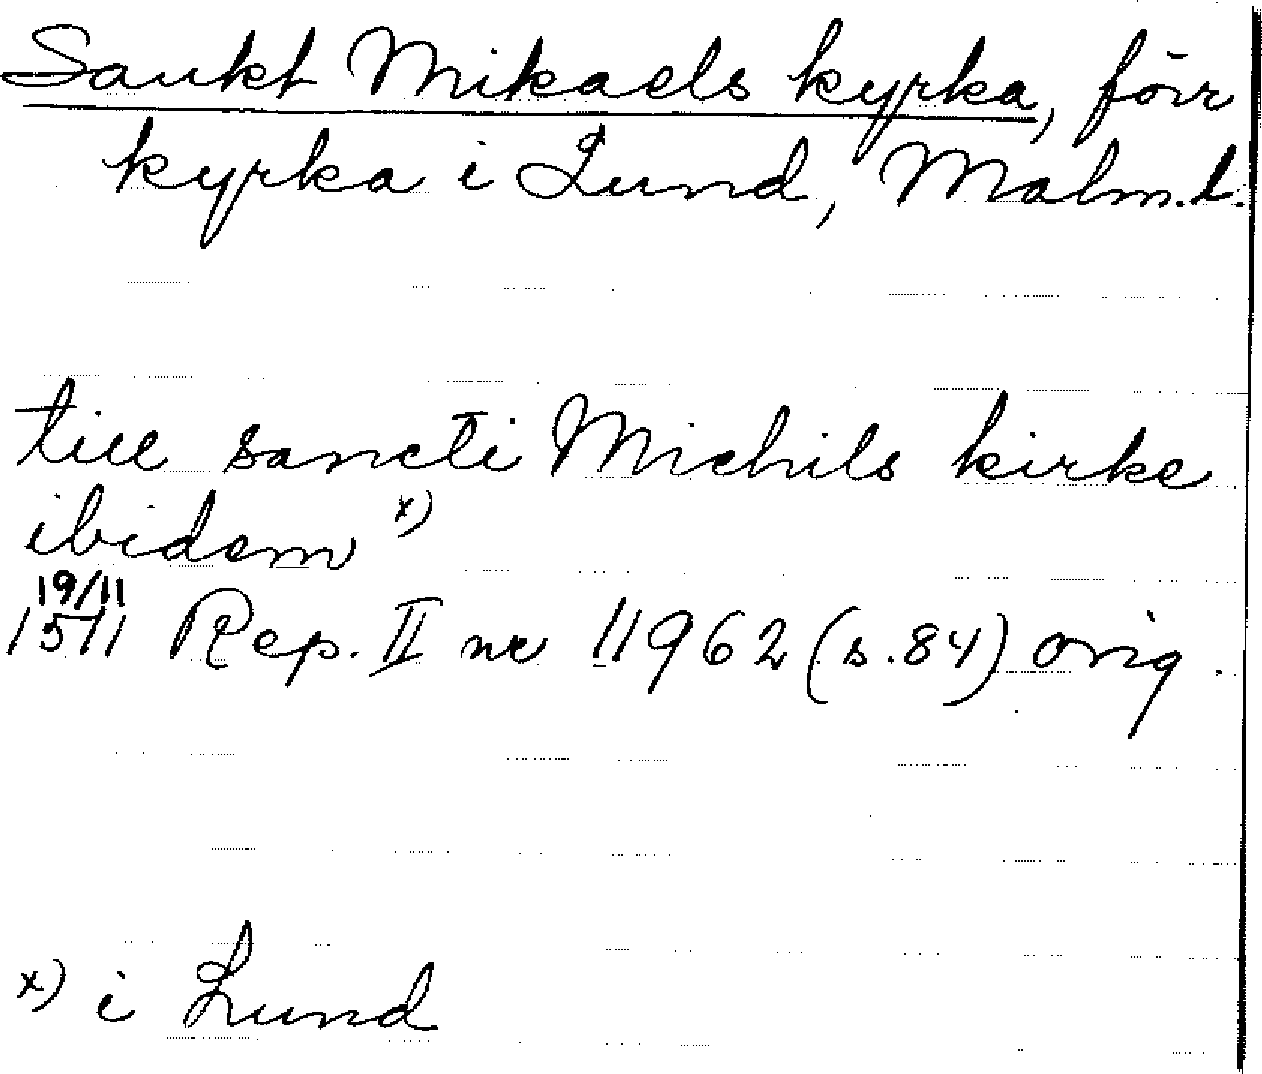 Sankt Mikaels kyrka, förr
kyrka i Lund, Malm.l.
till sancti Michils kirke
ibidem x)
19/11
1511 Rep. II nr 11962 (s.84) orig.
x) i Lund